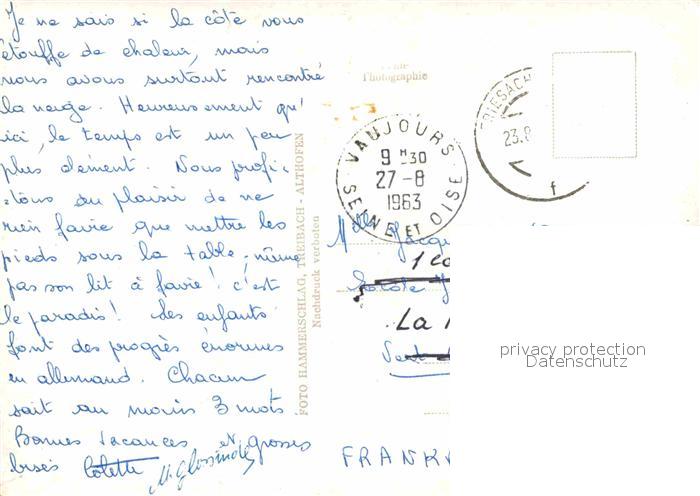 Je ne sais si la côte vous
étouffe de chaleur, mais
nous avons surtout rencontré
la neige. Heureusement qu'
ici, le temps est un peu
plus clément. Nous profi-
-tons du plaisir de ne
rien faire que mettre les
pieds sous la table, même
pas son lit à faire! c'est
le paradis! Les enfants
font des progrès énormes
en allemand. Chacun
sait au moins 3 mots.
Bonnes vacances et grosses
bises Colette
FOTO HAMMERSCHLAG, TREIBACH - ALTHOFEN
Nachdruck verboten
Photographie
VAUJOURS
9 H 30
27-8
1963
SEINE ET OISE
FRIESACH
23.8
f
Mlle Jacqu
La
FRANK
privacy protection
Datenschutz